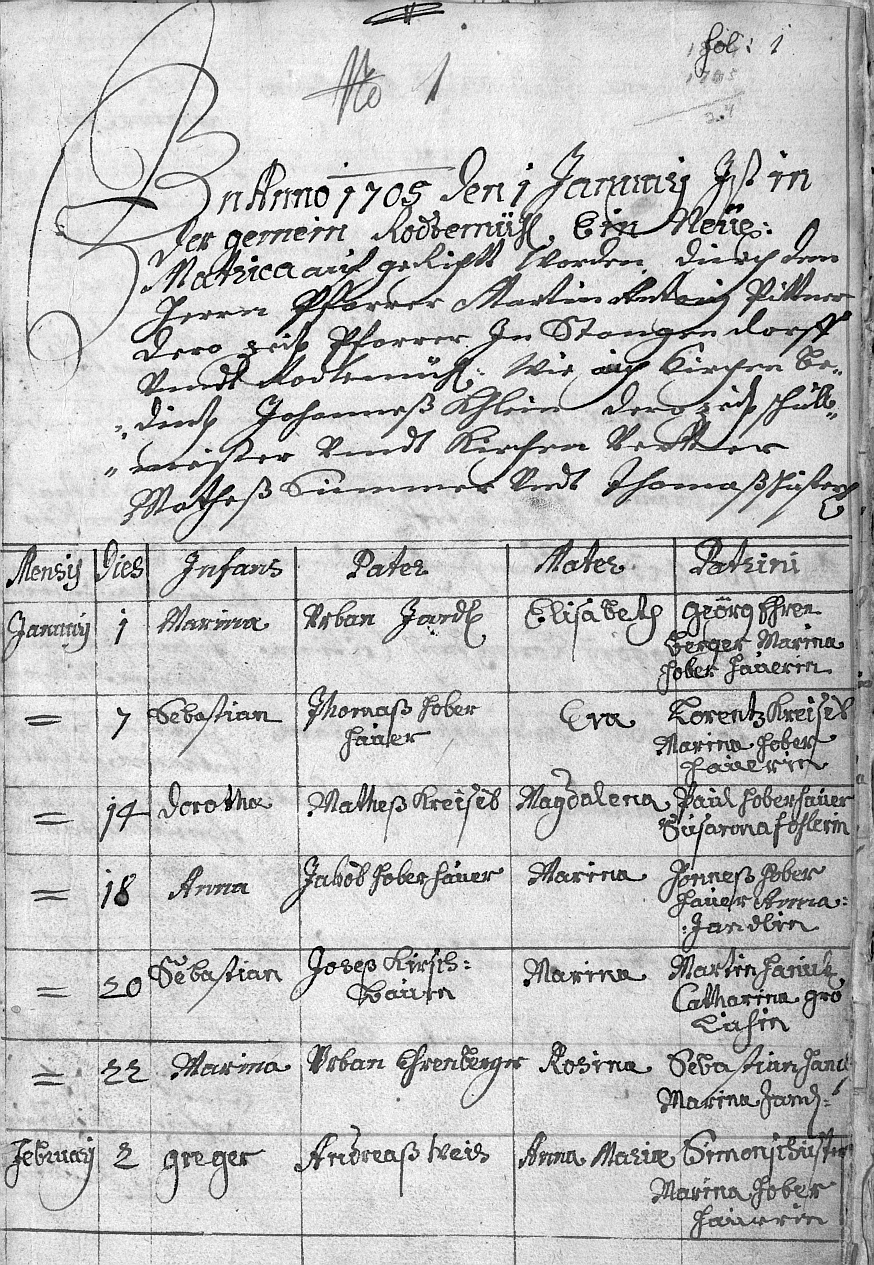 fol: 1
1705
No 1
In Anno 1705 den 1 January Ist in
Der gemein Rodtemühl Ein Neüe:
Matrica auf gericht worden, durch den
Herrn Pfarrer Martin Antoni Pittner
dero zeit Pfarrer In Stangendorff
Vndt Rodtemühl: Wie auch Kirchen be=
dient Johanneß Khlein dero zeit schull=
meister Vndt Kirchen Vetter
Matheß Summer Vndt Thomaß
Mensis Dies Infans Pater Mater Patrini
January 1 Marina Vrban Jandl Elisabeth Geörg Ehren
berger Marina
hober hauerin
= 7 Sebastian Thomaß hober Eva Lorentz Kreisel
hauer Marina hober
hauerin
= 14 Dorothea Matheß Kreisel Magdalena Paul hoberhauer
Susanna
= 18 Anna Jakob hoberhauer Marina Hanneß hober
hauer Anna:
:Jandlin
= 20 Sebastian Joseß Kirsch: Marina Martin
baum Catharina gro

= 22 Marina Vrban Ehrenberger Rosina Sebastian
Marina Jandl:
February 2 greger Andreaß weis Anna Maria Simon schuster
Marina hober
hauerin